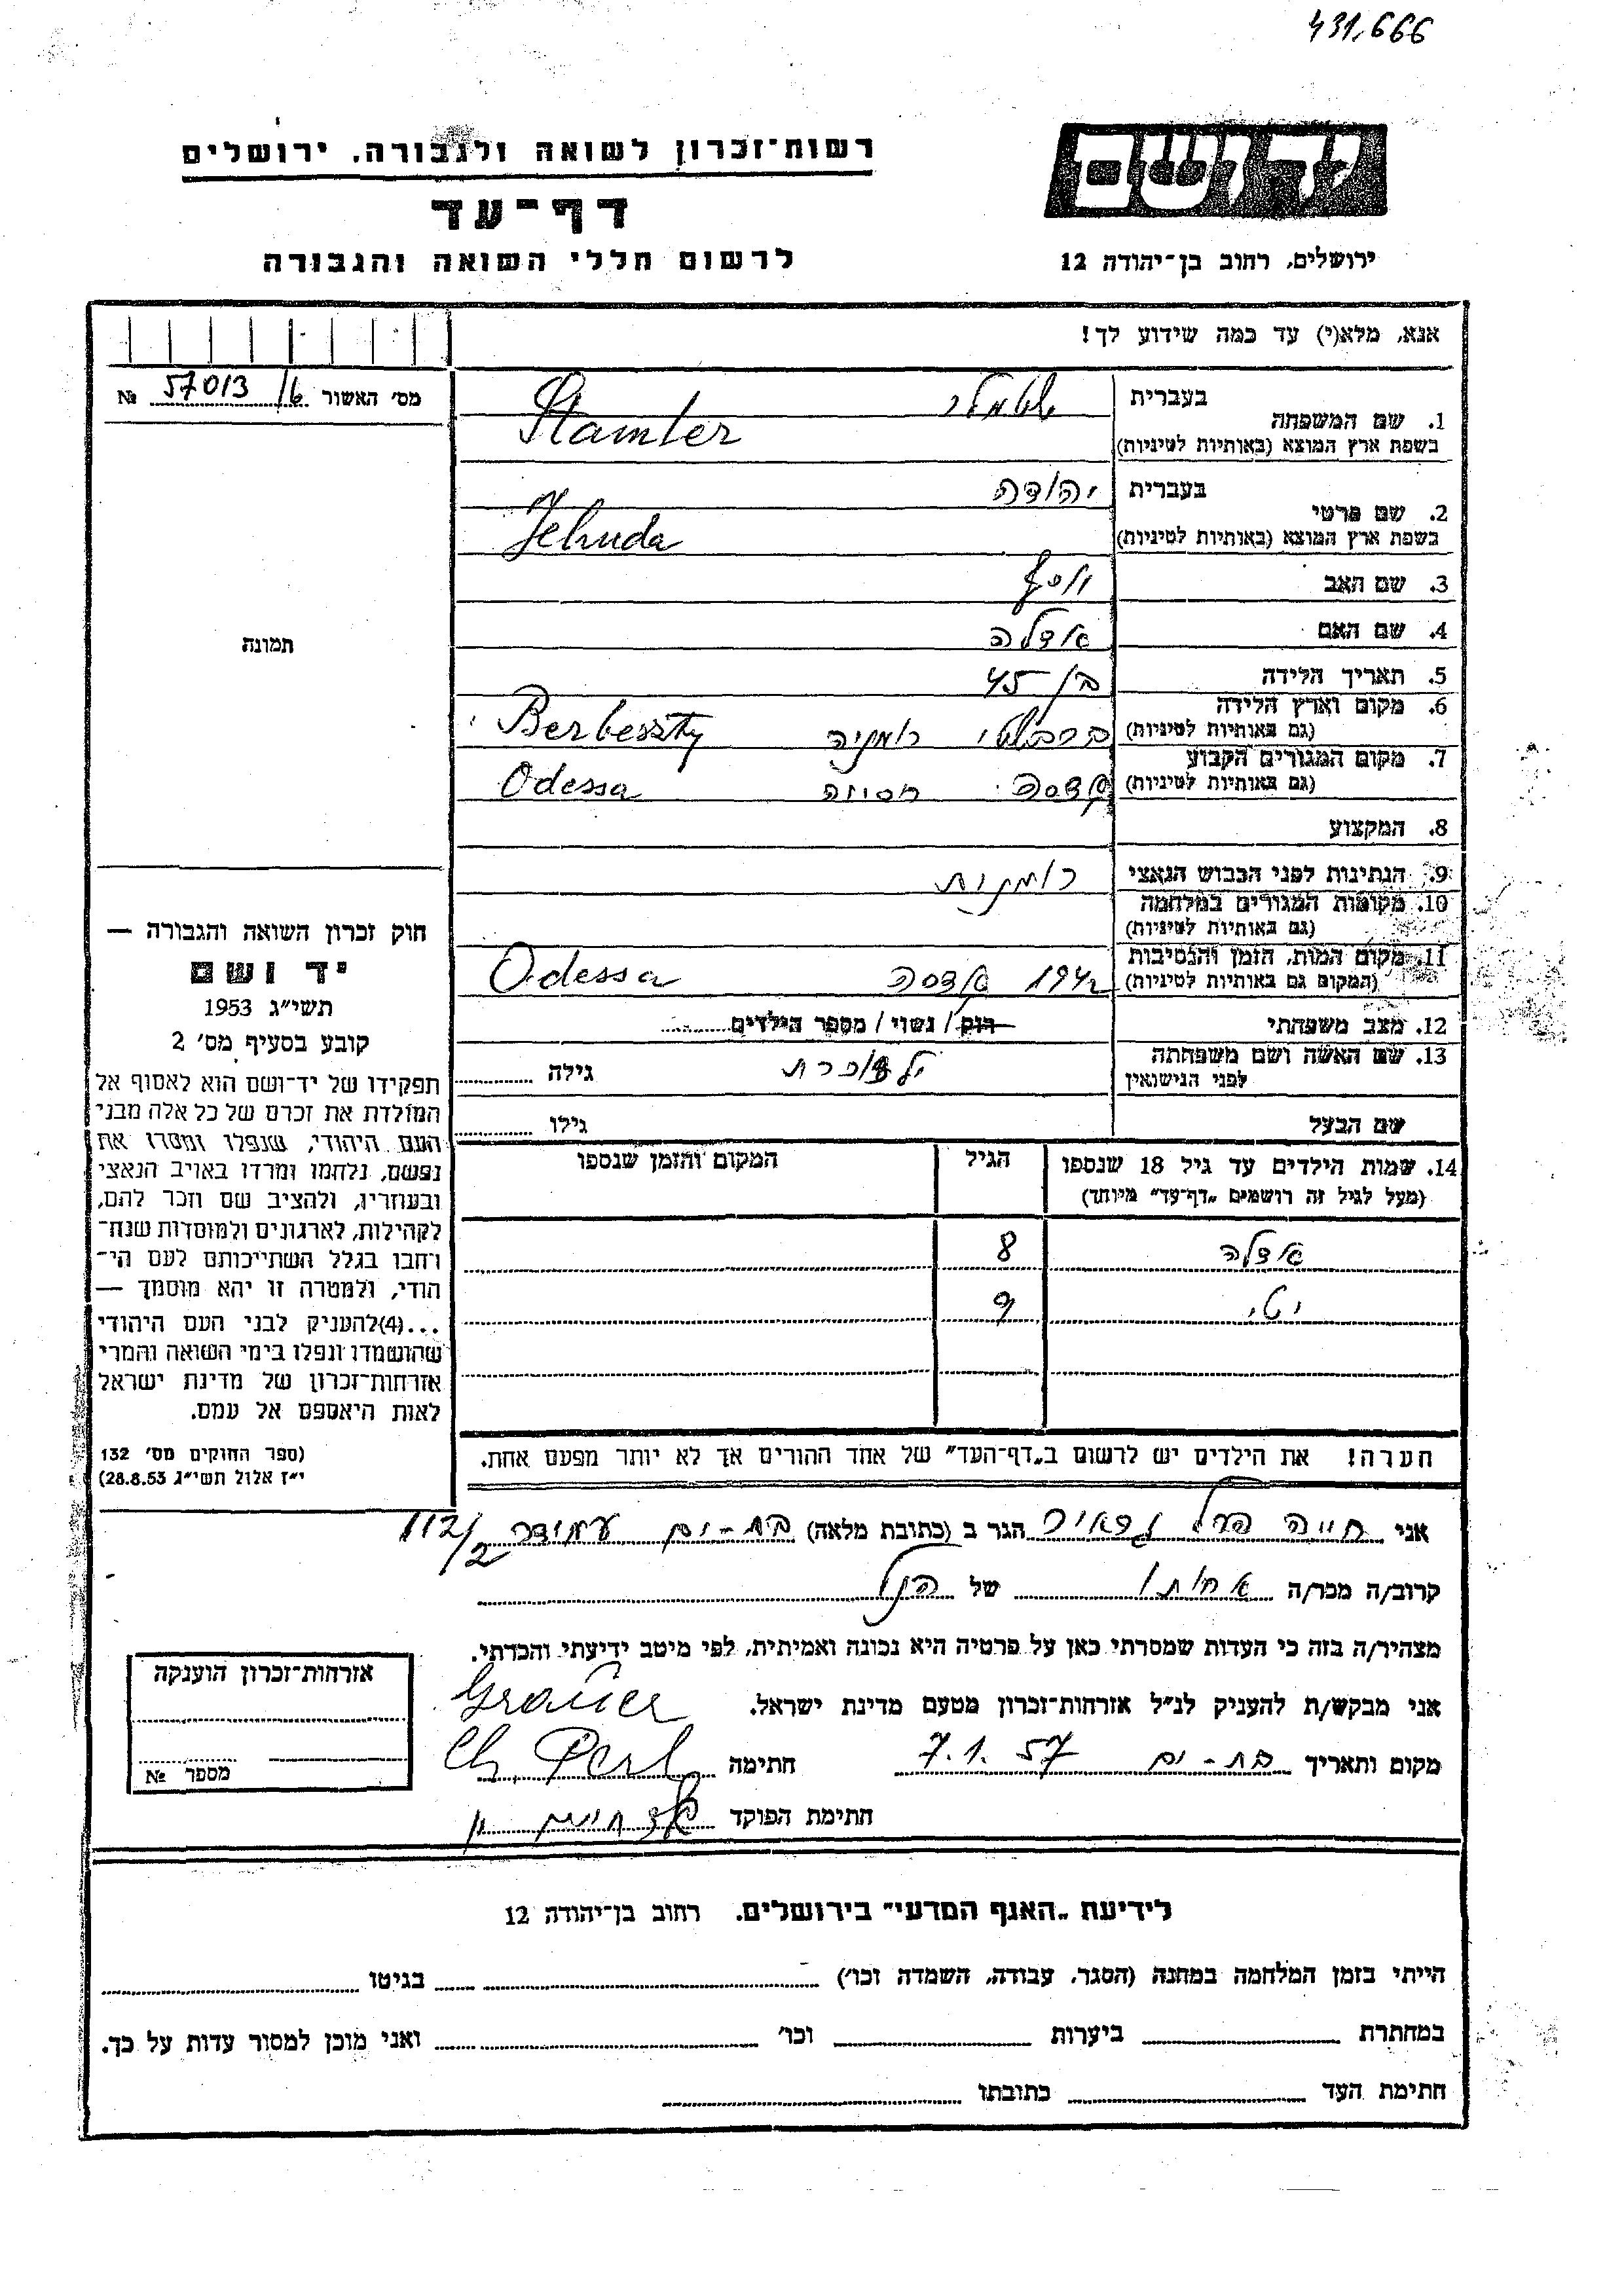 431,666
יד ושם
רשות־זכרון לשואה ולגבורה, ירושלים
דף־עד
לרשום חללי השואה והגבורה
ירושלים, רחוב בן־יהודה 12
אנא, מלא(י) עד כמה שידוע לך!
מס׳ האשור 57013/6 №
1. שם המשפחה
בעברית שטמלר
בשפת ארץ המוצא (באותיות לטיניות) Stamler
2. שם פרטי
בעברית יהודה
בשפת ארץ המוצא (באותיות לטיניות) Jehuda
3. שם האב יוסף
4. שם האם אדלה
5. תאריך הלידה בן 45
6. מקום וארץ הלידה
(גם באותיות לטיניות) ברבשטי רומניה Berbeszty
7. מקום המגורים הקבוע
(גם באותיות לטיניות) אודסה רוסיה Odessa
8. המקצוע
9. הנתינות לפני הכבוש הנאצי רומנית
10. מקומות המגורים במלחמה
(גם באותיות לטיניות)
11. מקום המות, הזמן והנסיבות
(המקום גם באותיות לטיניות) 1942 אודסה Odessa
12. מצב משפחתי רווק / נשוי / מספר הילדים
13. שם האשה ושם משפחתה
לפני הנישואין גילה
שם הבעל גילו
14. שמות הילדים עד גיל 18 שנספו
(מעל לגיל זה רושמים „דף־עד״ מיוחד)
הגיל
המקום והזמן שנספו
אדלה 8
יטי 9
הערה! את הילדים יש לרשום ב„דף־העד״ של אחד ההורים אך לא יותר מפעם אחת.
תמונה
חוק זכרון השואה והגבורה —
יד ושם
תשי״ג 1953
קובע בסעיף מס׳ 2
תפקידו של יד־ושם הוא לאסוף אל
המולדת את זכרם של כל אלה מבני
העם היהודי, שנפלו ומסרו את
נפשם, נלחמו ומרדו באויב הנאצי
ובעוזריו, ולהציב שם וזכר להם,
לקהילות, לארגונים ולמוסדות שנח־
רחבו בגלל השתייכותם לעם הי־
הודי, ולמטרה זו יהא מוסמך —
...(4)להעניק לבני העם היהודי
שהושמדו ונפלו בימי השואה והמרי
אזרחות־זכרון של מדינת ישראל
לאות היאספם אל עמם.
(ספר החוקים מס׳ 132
י״ז אלול תשי״ג 28.8.53)
אני חייה פרל גראור הגר ב (כתובת מלאה) בת-ים עמידר 112/2
קרוב/ה מכר/ה אחותו של הנ״ל
מצהיר/ה בזה כי העדות שמסרתי כאן על פרטיה היא נכונה ואמיתית, לפי מיטב ידיעתי והכרתי.
אני מבקש/ת להעניק לנ״ל אזרחות־זכרון מטעם מדינת ישראל.
Grauer
מקום ותאריך בת-ים 7.1.57 חתימה Ch Perl
חתימת הפוקד
אזרחות־זכרון הוענקה
מספר №
לידיעת „האגף המדעי״ בירושלים. רחוב בן־יהודה 12
הייתי בזמן המלחמה במחנה (הסגר, עבודה, השמדה וכו׳) בגיטו
במחתרת ביערות וכו׳ ואני מוכן למסור עדות על כך.
חתימת העד כתובתו